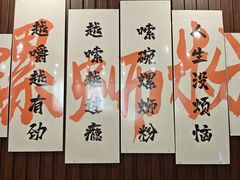 人生没烦恼
嗦碗螺蛳粉
越嗦越过瘾
越嚼越有劲
螺蛳粉